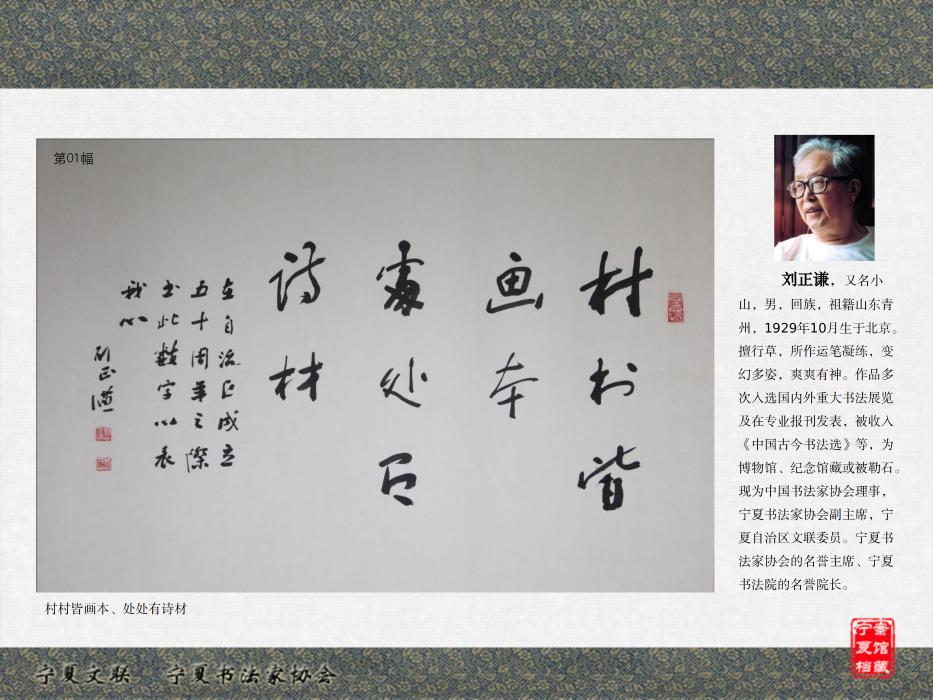 第01幅
村村皆
画本
處处有
诗材
在自治区成立
五十周年之際
书此数字以表
我心
刘正谦
村村皆画本、处处有诗材
刘正谦，又名小
山，男，回族，祖籍山东青
州，1929年10月生于北京。
擅行草，所作运笔凝练，变
幻多姿，爽爽有神。作品多
次入选国内外重大书法展览
及在专业报刊发表，被收入
《中国古今书法选》等，为
博物馆、纪念馆藏或被勒石。
现为中国书法家协会理事，
宁夏书法家协会副主席，宁
夏自治区文联委员。宁夏书
法家协会的名誉主席、宁夏
书法院的名誉院长。
宁夏文联 宁夏书法家协会
宁夏档
案馆藏